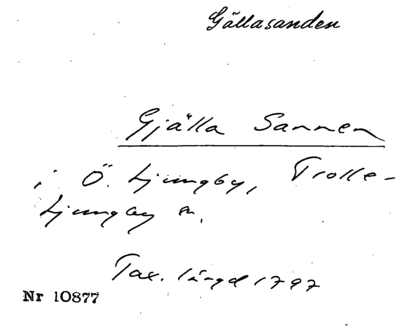 Gällasanden
Gjälla Sannen
i Ö. Ljungby, Trolle-
Ljungby sn.
Tax. längd 1797
Nr 10877